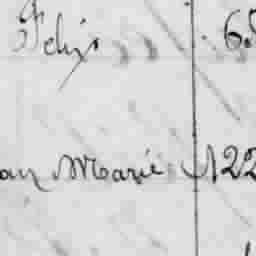 Felix 6
an Marie 122